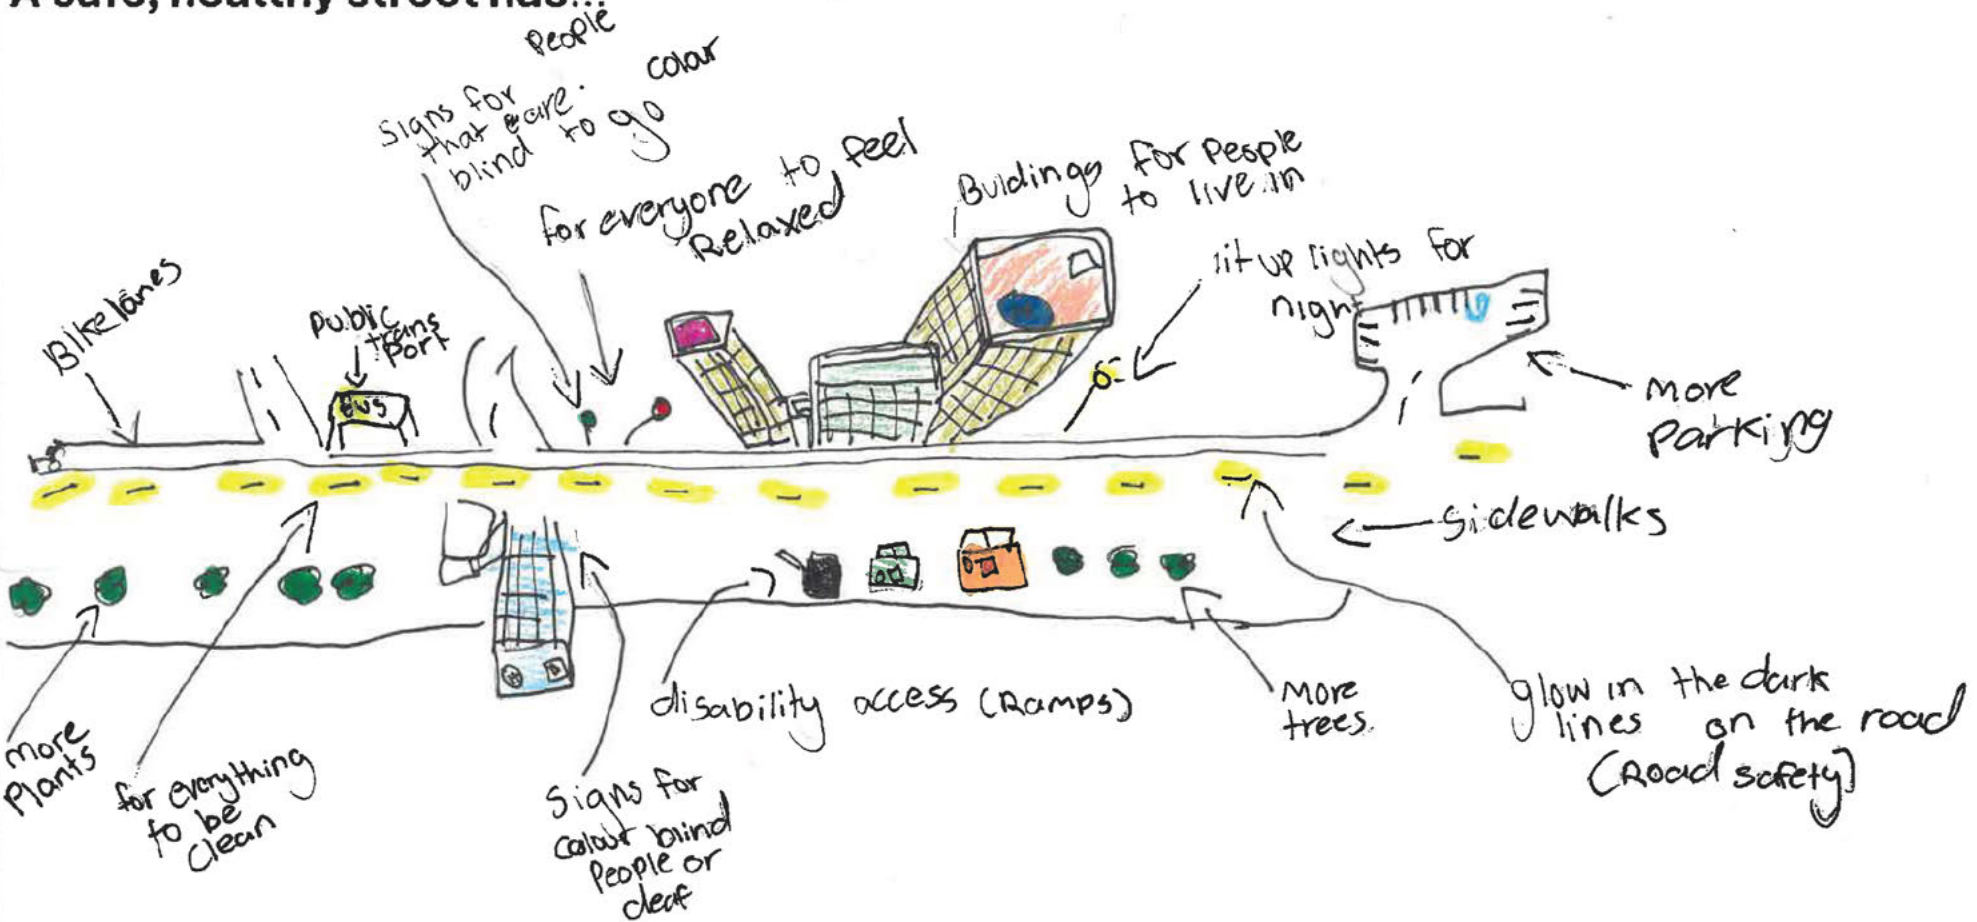 A safe, healthy street has...
People
Signs for
that are colour
blind to go
for everyone to feel
Relaxed
Buldings for People
to live in
lit up lights for
night
Bike lanes
Public
trans
Port
BUS
more
Parking
Sidewalks
more
Plants
for everything
to be
clean
Signs for
colour blind
People or
deaf
disability access (Ramps)
More
trees
glow in the dark
lines on the road
(Road safety)